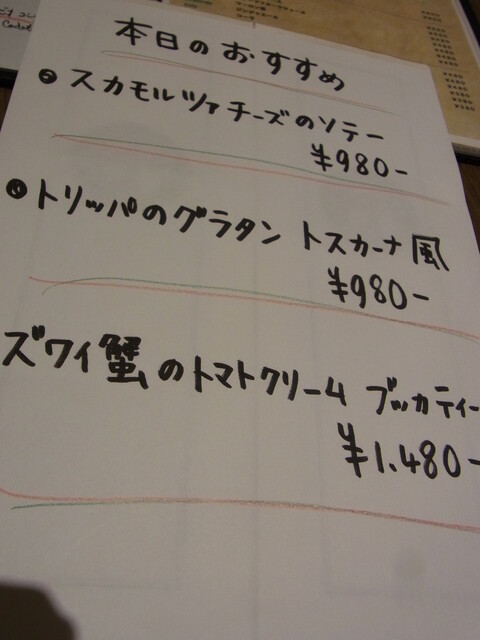 本日のおすすめ
スカモルツァチーズのソテー
¥980-
トリッパのグラタン トスカーナ風
¥980-
ズワイ蟹のトマトクリーム ブッカティー
¥1.480-